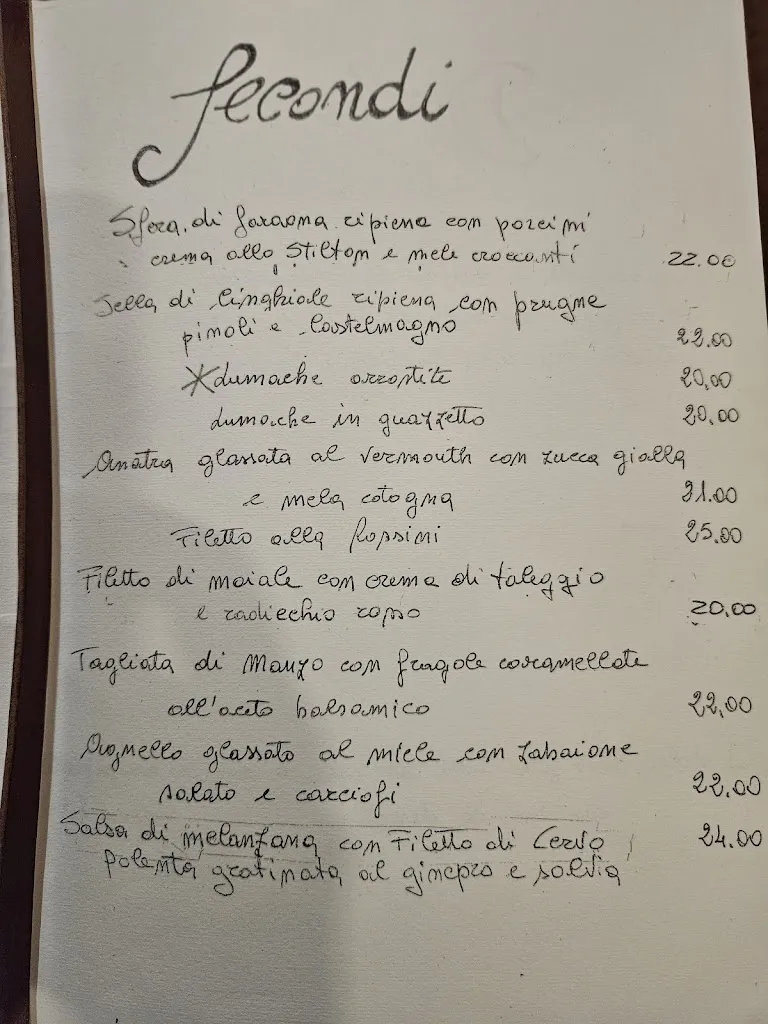 Secondi
Sfera di faraona ripiena con porcini
crema allo Stilton e mele croccanti 22.00
Sella di Cinghiale ripiena con prugne
pinoli e Castelmagno 22.00
*Lumache arrostite 20,00
Lumache in guazzetto 20.00
Anatra glassata al vermouth con zucca gialla
e mela cotogna 21.00
Filetto alla Rossini 25.00
Filetto di maiale con crema di taleggio
e radicchio rosso 20.00
Tagliata di Manzo con fragole caramellate
all'aceto balsamico 22,00
Agnello glassato al miele con zabaione
salato e carciofi 22.00
Salsa di melanzana con Filetto di Cervo, 24.00
polenta gratinata al ginepro e salvia